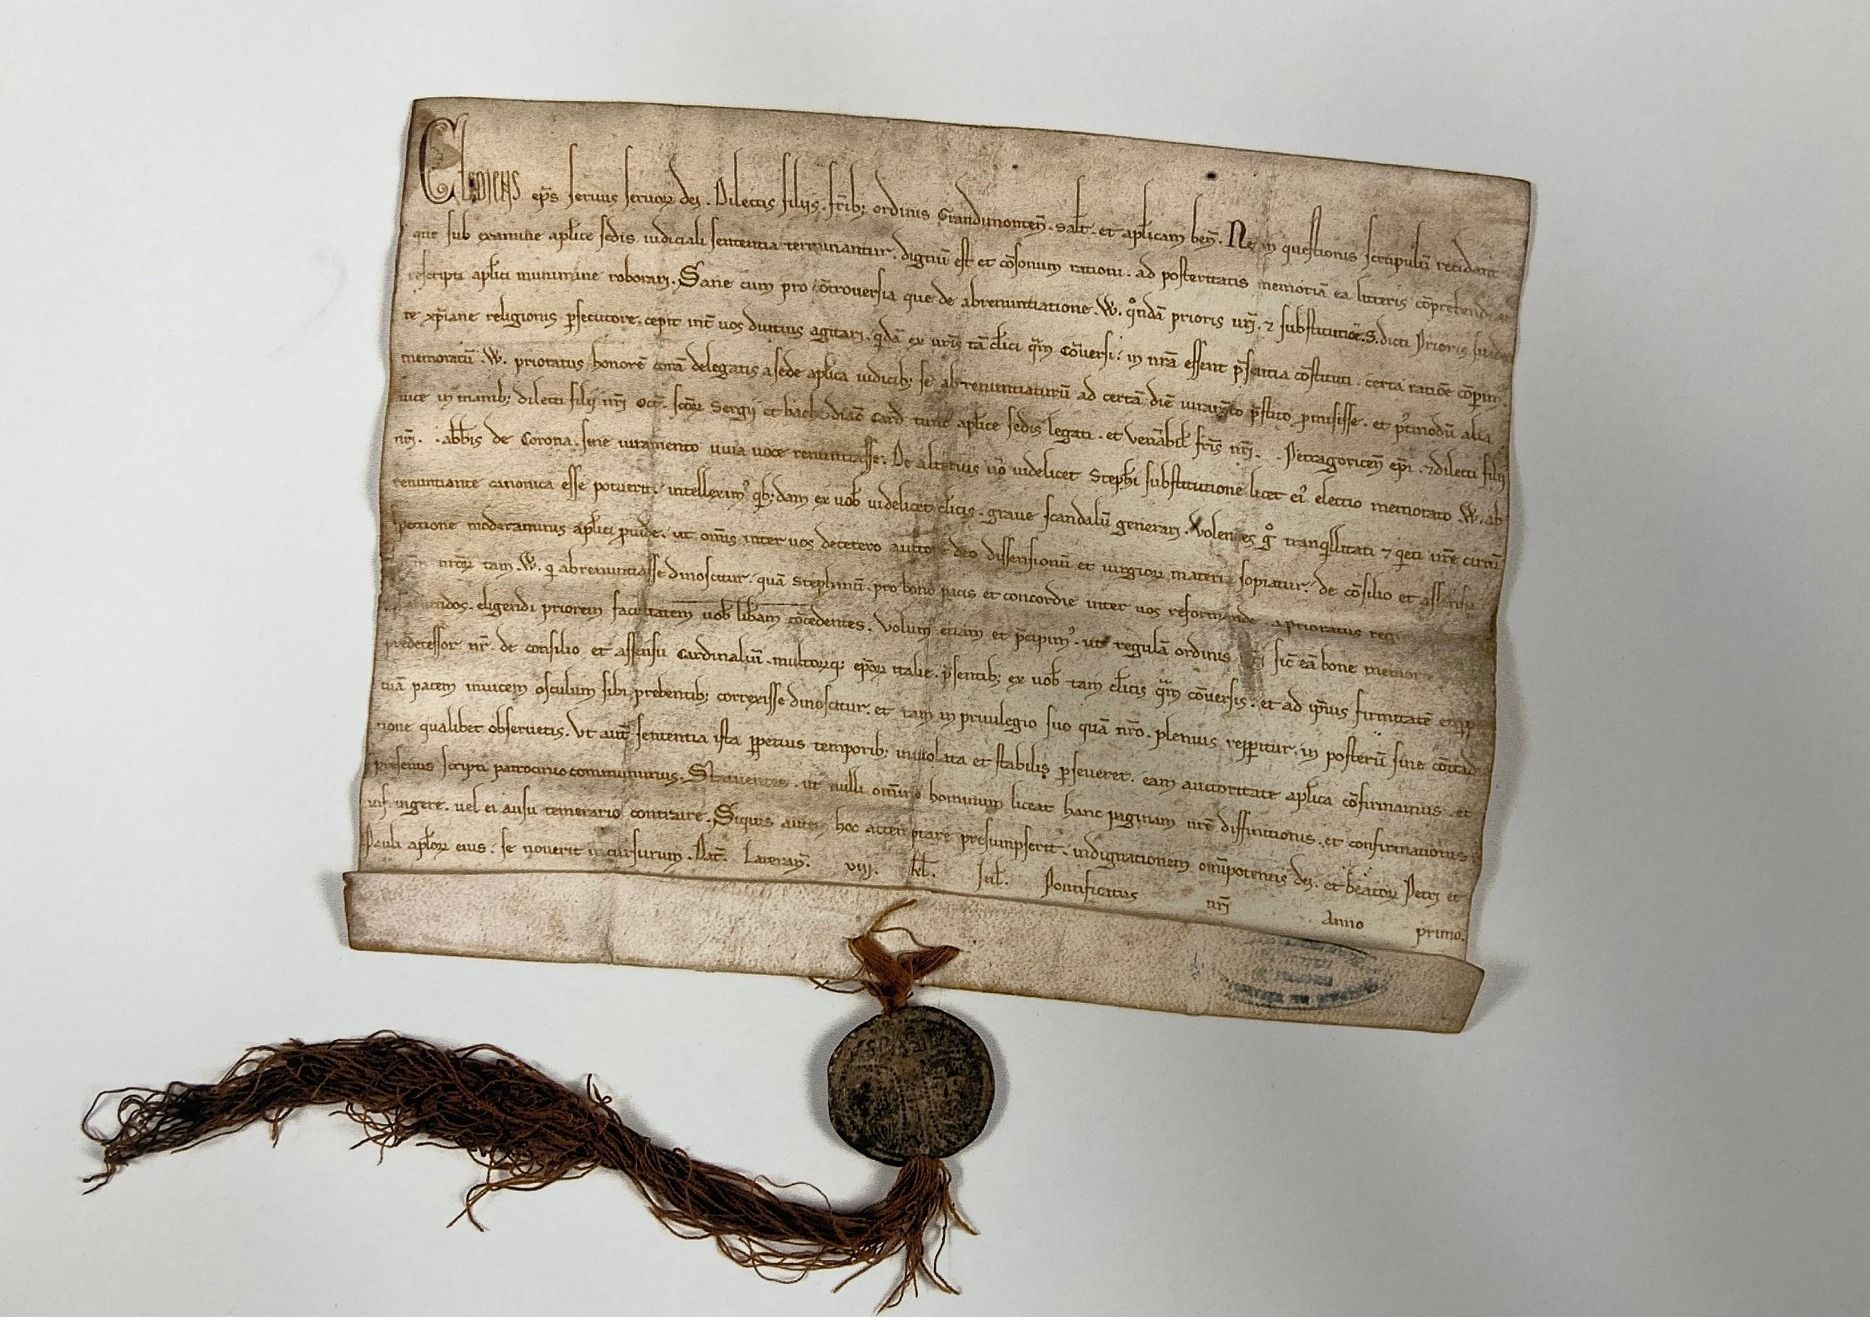 Clemens ep̅s seruus seruoꝝ dei. Dilectis filiis. fr̅ib; ordinis Grandimonteñ. sal̅t. et apl̅icam ben̅. Ne in questionis scrupulu̅ recidant
que sub examine apl̅ice sedis iudiciali sententia terminantur. dignu̅ est et co̅sonum rationi. ad posteritatis memoria̅ ea litteris co̅prehendi et
rescripti apl̅ici munimine roborari. Sane cum pro co̅trouersia que de abrenuntiatione .W. qͦnda̅ prioris ur̅i. ⁊ substitutio̅e .S. dicti Prioris
te xp̅iane religionis p̱secutore. cepit int̅ uos diutius agitari. qida̅ ex ur̅is ta̅ cl̅ici qͣm co̅uersi. in nr̅a essent p̅sentia co̅stituti. certa ratio̅e co̅ꝑimꝰ
memoratu̅ .W. prioratus honore̅ cora̅ delegatis a sede apl̅ica iudicib; se abrenuntiaturu̅ ad certa̅ die̅ iuram̅to p̅stito ꝓmisisse. et pͦtmodu̅ alia
uice in manib; dilecti filij nr̅i Oct̅. sc̅oꝝ Sergii et bachi diac̅ card tunc apl̅ice sedis legati. et uen̅abil̅ fr̅is nr̅i. . Petragoriceñ ep̅i. ⁊ dilecti filij
nr̅i. . abb̅is de Corona. sine iuramento uiua uoce renuntiasse. De alterius u̅o uidelicet Steph̅i substitutione licet eiꝰ electio memorato .W. ab
renuntiante canonica esse potuerit. intelleximꝰ qib;dam ex uob̅ uidelicet cl̅icis. graue scandalu̅ generari. Volentes gͦ tranqillitati ⁊ qieti ur̅e circu̅
spectione moderaminis apl̅ici ꝓuide. ut om̅is inter uos decetero auctore deo dissensionu̅ et iurgioꝝ materia sopiatur. de co̅silio et assensu
nr̅oꝝ tam .W. qi abrenuntiasse dinoscitur. qua̅ Stephanu̅. pro bono pacis et concordie inter uos reformande. a prioratus
eligendi priorem facultatem uob̅ lib̅am co̅cedentes. Volum̅ etiam et p̅cipimꝰ. ut regula̅ ordinis ur̅i sic̅ ea̅ bone memorie
predecessor nr̅. de consilio et assensu Cardinaliu̅. multoꝝq; ep̅oꝝ italie. p̅sentib; ex uob̅ tam cl̅icis qͣm co̅uersis. et ad ip̅ius firmitate̅
pacem inuicem osculum sibi prebentib; correxisse dinoscitur. et tam in priuilegio suo qua̅ nr̅o. plenius repꝑitur. in posteru̅ sine co̅trad
tione qualibet obseruetis. Vt aut̅ sententia ista ꝑpetuis temporib; inuiolata et stabilis ꝑseueret. eam auctoritate apl̅ica co̅firmamus. et
presentis scripti patrocinio communimus. Statuentes. ut nulli om̅ino hominum liceat hanc paginam nr̅e diffinitionis. et confirmationis
infringere. uel ei ausu temerario contraire. Siquis autem hoc attemptare presumpserit. indignationem om̅ipotentis dei. et beatoꝝ Petri et
Pauli apl̅oꝝ eius. se nouerit incursurum. Dat̅. Laterañ. viii. kl̅. Iul̅. Pontificatus nr̅i Anno primo.